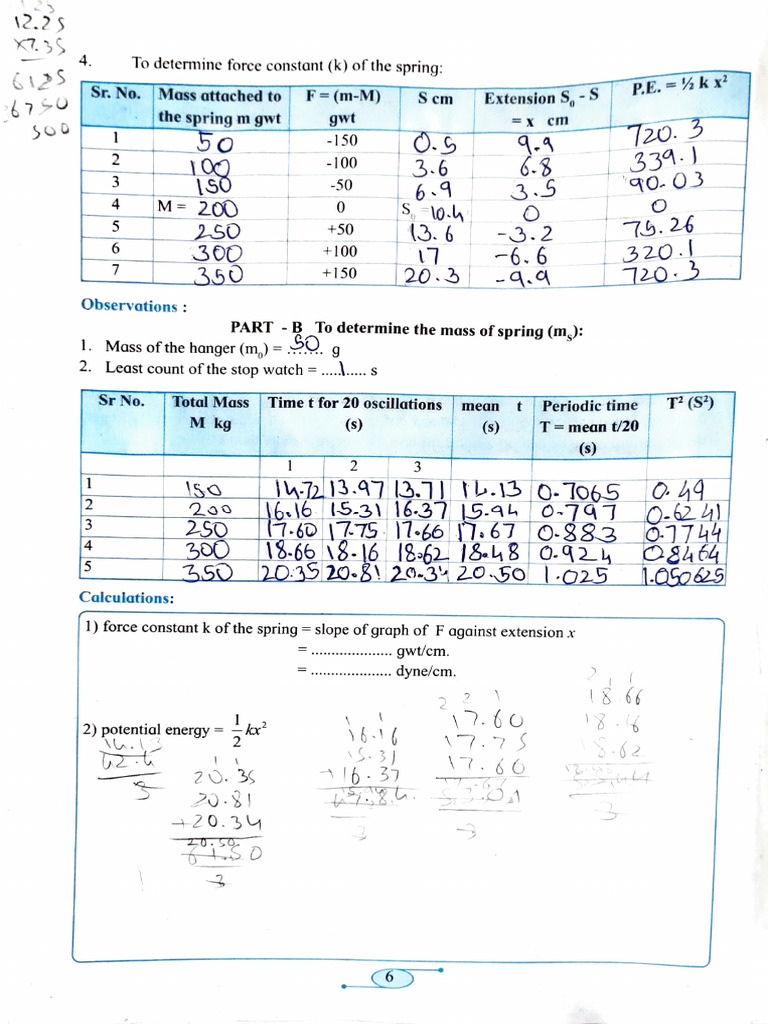 12.25
x7.35
6125
6750
500
4. To determine force constant (k) of the spring:
Sr. No. Mass attached to the spring m gwt F = (m-M) gwt S cm Extension S₀ - S = x cm P.E. = ½ k x²
1 50 -150 0.5 9.9 720.3
2 100 -100 3.6 6.8 339.1
3 150 -50 6.9 3.5 90.03
4 M = 200 0 S₀ = 10.4 0 0
5 250 +50 13.6 -3.2 75.26
6 300 +100 17 -6.6 320.1
7 350 +150 20.3 -9.9 720.3
Observations :
PART - B To determine the mass of spring (mₛ):
1. Mass of the hanger (m₀) = .50...... g
2. Least count of the stop watch = .....1..... s
Sr No. Total Mass M kg Time t for 20 oscillations (s) mean t (s) Periodic time T = mean t/20 (s) T² (S²)
1 2 3
1 150 14.72 13.97 13.71 14.13 0.7065 0.49
2 200 16.16 15.31 16.37 15.94 0.797 0.6241
3 250 17.60 17.75 17.66 17.67 0.883 0.7744
4 300 18.66 18.16 18.62 18.48 0.924 0.8464
5 350 20.35 20.81 20.34 20.50 1.025 1.050625
Calculations:
1) force constant k of the spring = slope of graph of F against extension x
= .................... gwt/cm.
= .................... dyne/cm.
2) potential energy = 1/2 kx²
14.13
42.4
3
20.35
20.81
+20.34
20.50
61.50
3
16.16
15.31
+16.37
47.84
3
17.60
17.75
17.60
3
18.66
18.16
18.62
3
6